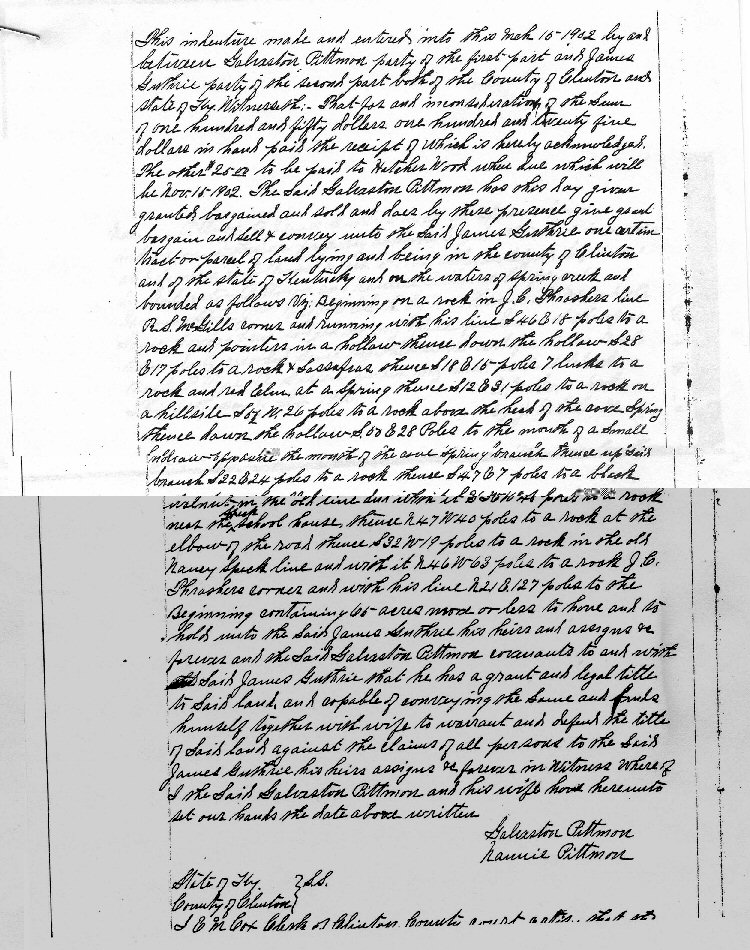 This indenture made and entered into this Mch 15-1902 by and
between Galvaston Pittmon party of the first part and James
Guthrie party of the second part both of the County of Clinton and
State of Ky. Witnesseth:- That for and in consideration of the Sum
of one hundred and fifty dollars one hundred and twenty five
dollars in hand paid the receipt of which is hereby acknowledged.
The other $25.00 to be paid to Wood when due which will
be Nov. 15-1902. The Said Galvaston Pittmon has this day given
granted, bargained and sold and does by these presence give grant
bargain and sell & convey unto the Said James Guthrie one certain
tract or parcel of land lying and being in the county of Clinton
and of the state of Kentucky and on the waters of Spring creek and
bounded as follows Viz; Beginning on a rock in J.C. Thrashers line
R.S. McGills corner and running with his line S46E18 poles to a
rock and pointers in a hollow thence down the hollow S28
E17 poles to a rock & Sassafras thence S18E15 poles 7 links to a
rock and red Elm at a Spring thence S12E31 poles to a rock on
a hillside W26 poles to a rock above the head of the cove Spring
thence down the hollow E28 Poles to the mouth of a Small
the mouth of the cove Spring branch thence up Said
branch S22E24 poles to a rock thence S47E7 poles to a black
walnut in the old line to a rock
near the School house, thence N47W40 poles to a rock at the
elbow of the road thence S32W19 poles to a rock in the old
Nancy Speck line and with it N46W63 poles to a rock J.C.
Thrashers corner and with his line N21E127 poles to the
Beginning containing 65 acres more or less to have and to
hold unto the Said James Guthrie his heirs and assigns &c
forever and the Said Galvaston Pittmon covenants to and with
Said James Guthrie that he has a grant and legal title
to Said land, and capable of conveying the Same and
himself together with wife to warrant and defend the title
of Said land against the claims of all persons to the Said
James Guthrie, his heirs assigns &c forever in Witness Where of
I the Said Galvaston Pittmon and his wife have hereunto
set our hands the date above written
Galvaston Pittmon
Nannie Pittmon
State of Ky. } S.S.
County of Clinton
I E M Cox Clerk of Clinton County court that